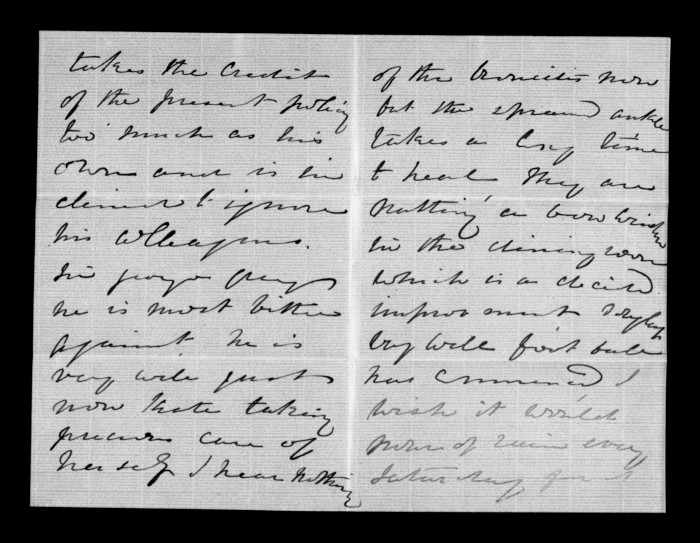 takes the credit
of the present policy
too much as his
own and is in
clined to ignore
his colleagues.
Sir George Grey
he is most bitter
against. he is
very well just
now Kate taking
precious care of
herself I hear nothing
of the bronchitis now
but the sprained ankle
takes a long time
to heal They are
putting a bow window
in the dining room
which is a decided
improvement
very well foot ball
has commenced I
wish it would
pour of rain every
Saturday